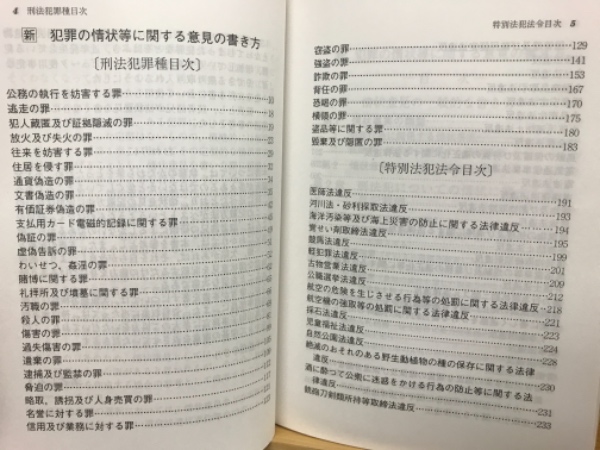 4 刑法犯罪種目次
新 犯罪の情状等に関する意見の書き方
〔刑法犯罪種目次〕
公務の執行を妨害する罪 10
逃走の罪
犯人蔵匿及び証拠隠滅の罪
放火及び失火の罪
往来を妨害する罪
住居を侵す罪
通貨偽造の罪
文書偽造の罪
有価証券偽造の罪
支払用カード電磁的記録に関する罪
偽証の罪
虚偽告訴の罪
わいせつ、姦淫の罪
賭博に関する罪
礼拝所及び墳墓に関する罪
汚職の罪
殺人の罪
傷害の罪
過失傷害の罪
遺棄の罪
逮捕及び監禁の罪
脅迫の罪
略取、誘拐及び人身売買の罪
名誉に対する罪
信用及び業務に対する罪
特別法犯法令目次 5
窃盗の罪 129
強盗の罪 141
詐欺の罪 153
背任の罪 167
恐喝の罪 170
横領の罪 175
盗品等に関する罪 180
毀棄及び隠匿の罪 183
〔特別法犯法令目次〕
医師法違反 191
河川法・砂利採取法違反 193
海洋汚染等及び海上災害の防止に関する法律違反 194
覚せい剤取締法違反 195
競馬法違反 199
軽犯罪法違反 201
古物営業法違反 209
公職選挙法違反 212
航空の危険を生じさせる行為等の処罰に関する法律違反 218
航空機の強取等の処罰に関する法律違反 221
採石法違反 223
児童福祉法違反 224
自然公園法違反 228
絶滅のおそれのある野生動植物の種の保存に関する法律
違反 230
酒に酔つて公衆に迷惑をかける行為の防止等に関する法
律違反 231
銃砲刀剣類所持等取締法違反 233